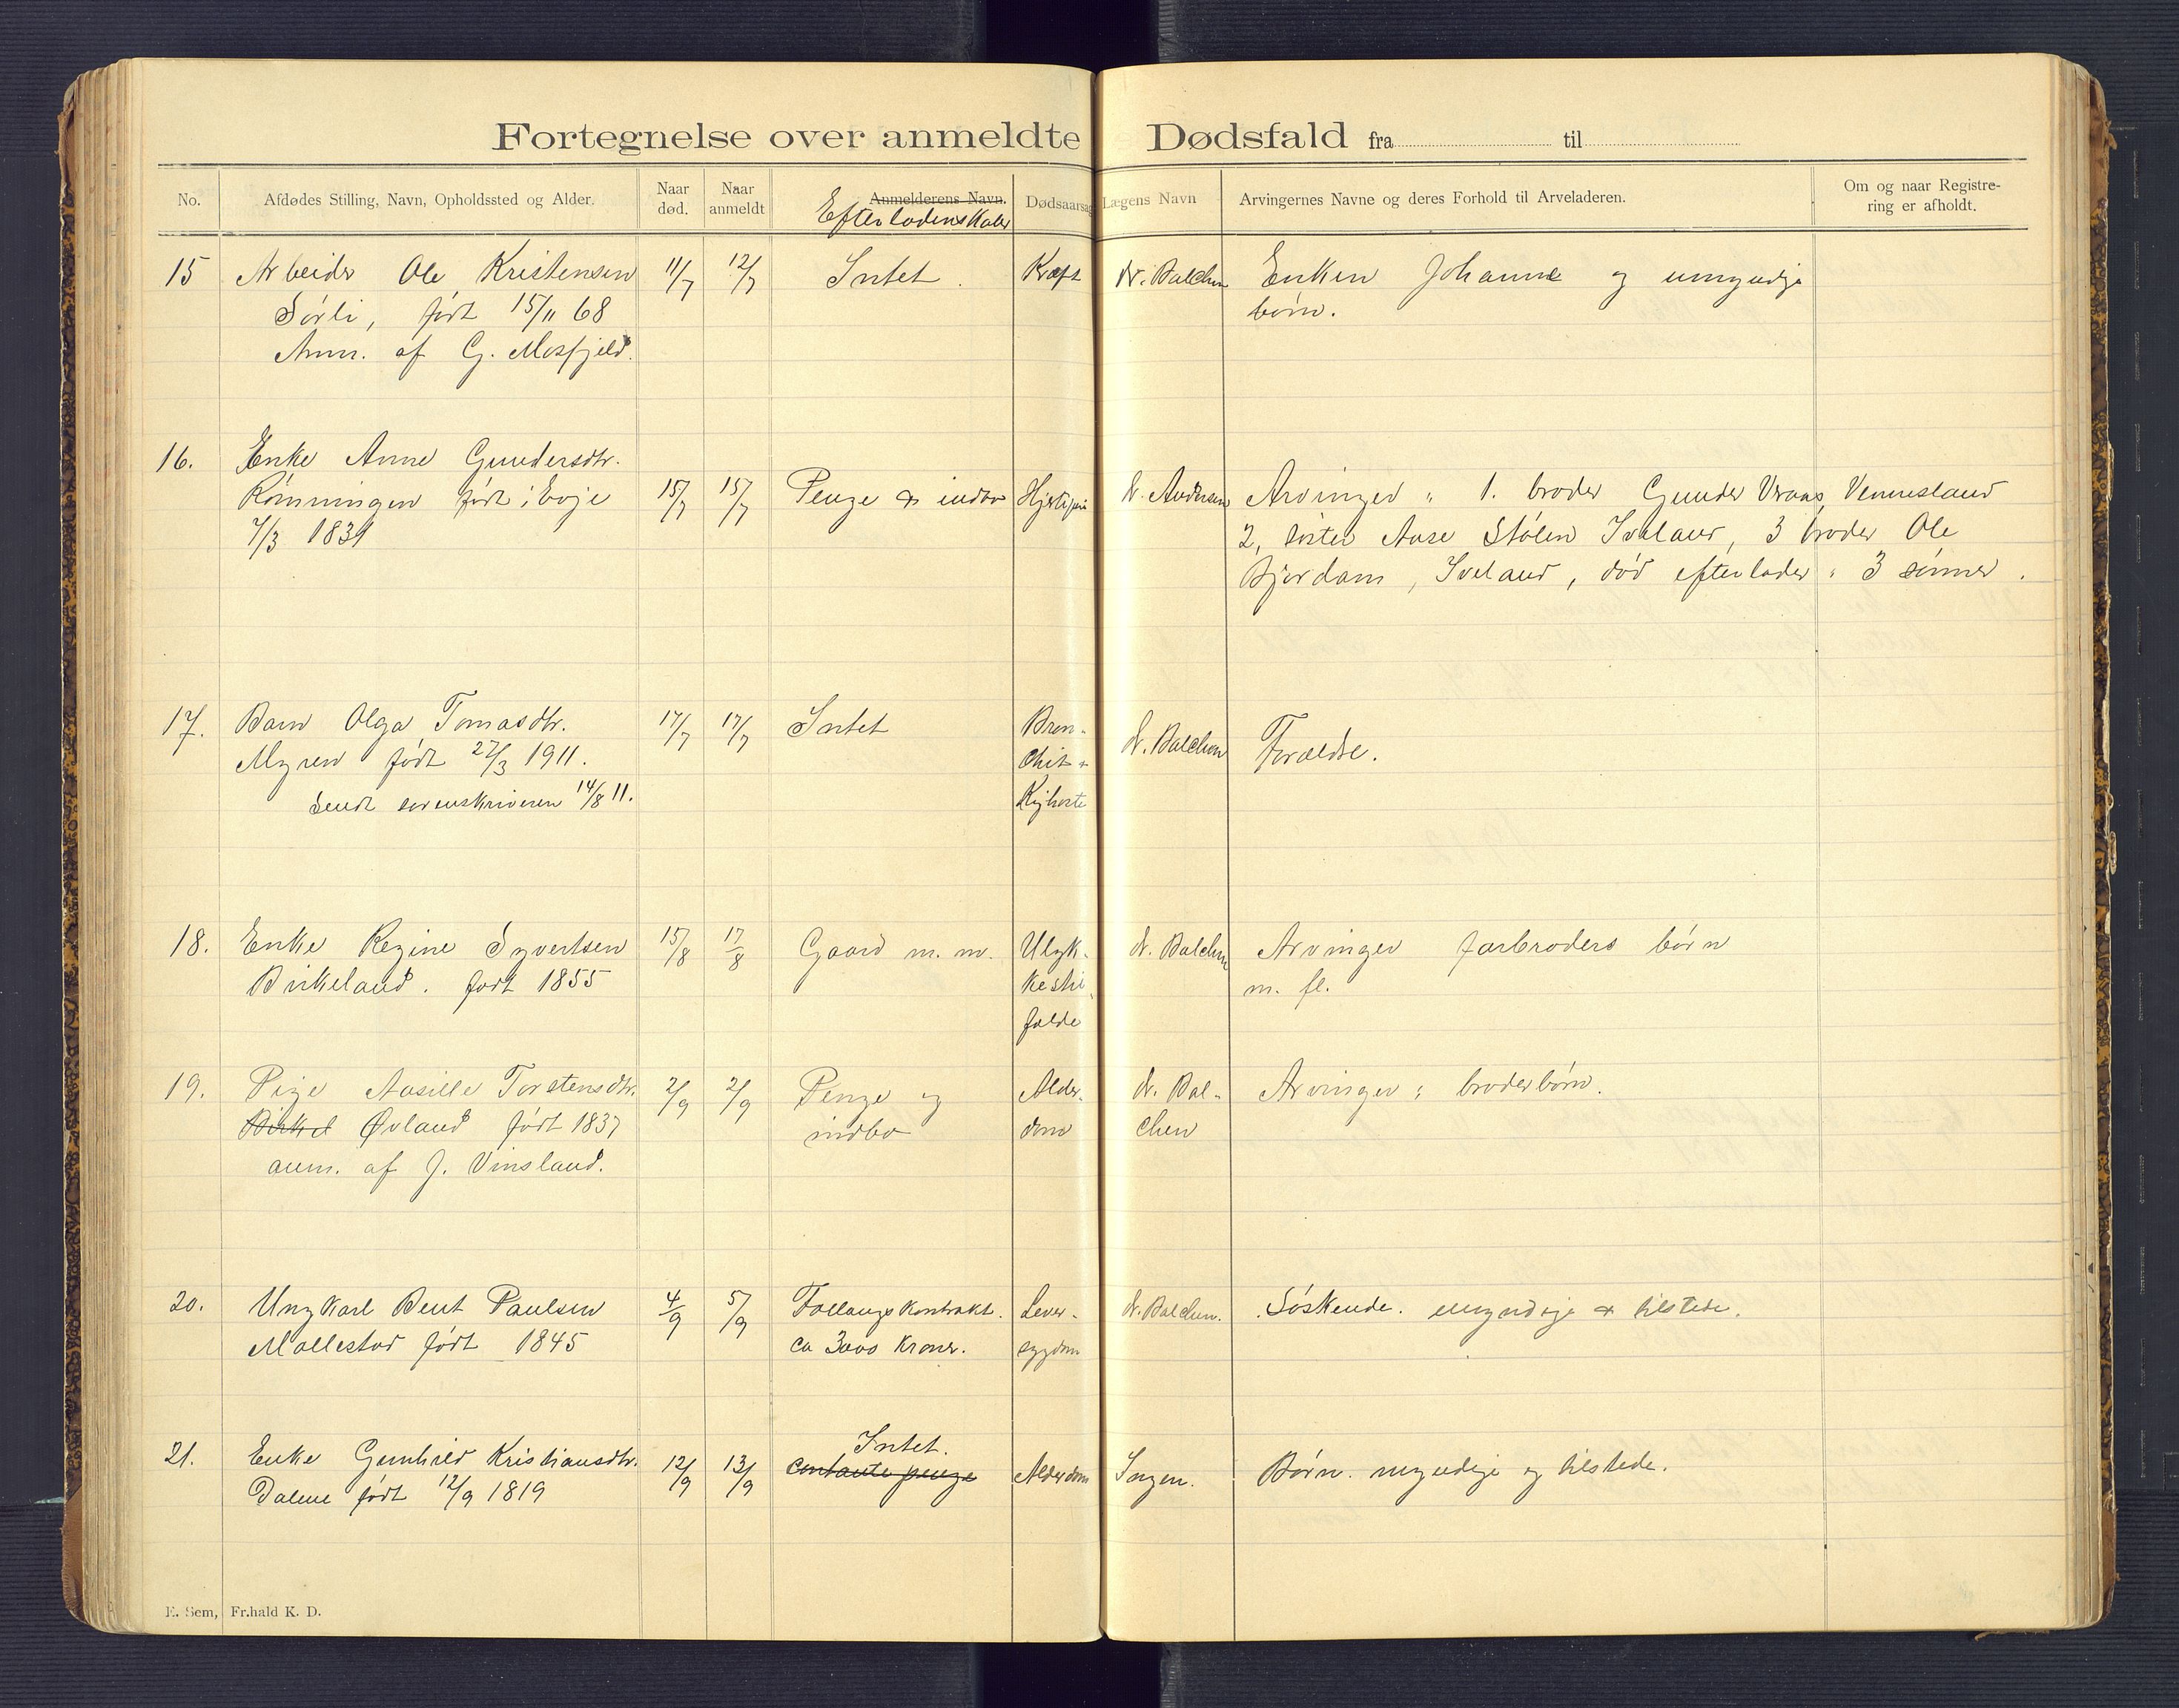 Fortegnelse over anmeldte Dødsfald fra til
No. Afdødes Stilling, Navn, Opholdssted og Alder. Naar død. Naar anmeldt Anmelderens Navn. Efterladenskaber Dødsaarsag Lægens Navn Arvingernes Navne og deres Forhold til Arveladeren. Om og naar Registrering er afholdt.
15 Arbeider Ole Kristensen 11/7 12/7 Intet. Kræft dr. Balchen Enken Johanne og umyndige
Sørli, født 15/11 68 børn.
Anm. af G. Mosfjeld.
16. Enke Anne Gundersdtr.
Rømningen født i Evje 15/7 15/7 Penge & indbo dr. Andersen Arvinger: 1. broder Gunder Vraas, Vennesland
7/3 1831 2, søster Aase Stølen Iveland, 3 broder Ole
Bjordam, Iveland, død efterlader: 3 sønner.
17. Barn Olga Tomasdtr. 17/7 17/7 Intet Bron-
Myren født 27/3 1911. chit & dr. Balchen Forældre.
Sendt sorenskriveren 14/8 11. Kighoste
18. Enke Regine Syvertsen 15/8 17/8 Gaard m. m. Ulyk- dr. Balchen Arvinger farbroders børn
Birkeland. født 1855 m. fl.
19. Pige Aasille Torstensdtr. 2/9 2/9 Penge og Alder- dr. Bal- Arvinger: broderbørn.
Birkel Øvland født 1837 indbo dom chen
anm. af J. Vinsland.
20. Ungkarl Bent Paulsen 4/9 5/9 Føllaugskontrakt. Lever- dr. Balchen. Søskende. myndige & tilstede.
Mollestad født 1845 ca 3000 kroner. sygdom
21. Enke Gunhild Kristiansdtr. 12/9 13/9 Intet. contante penge Alderdom Ingen. Børn. myndige og tilstede.
Dalene født 12/9 1819
E. Sem, Fr.hald K. D.